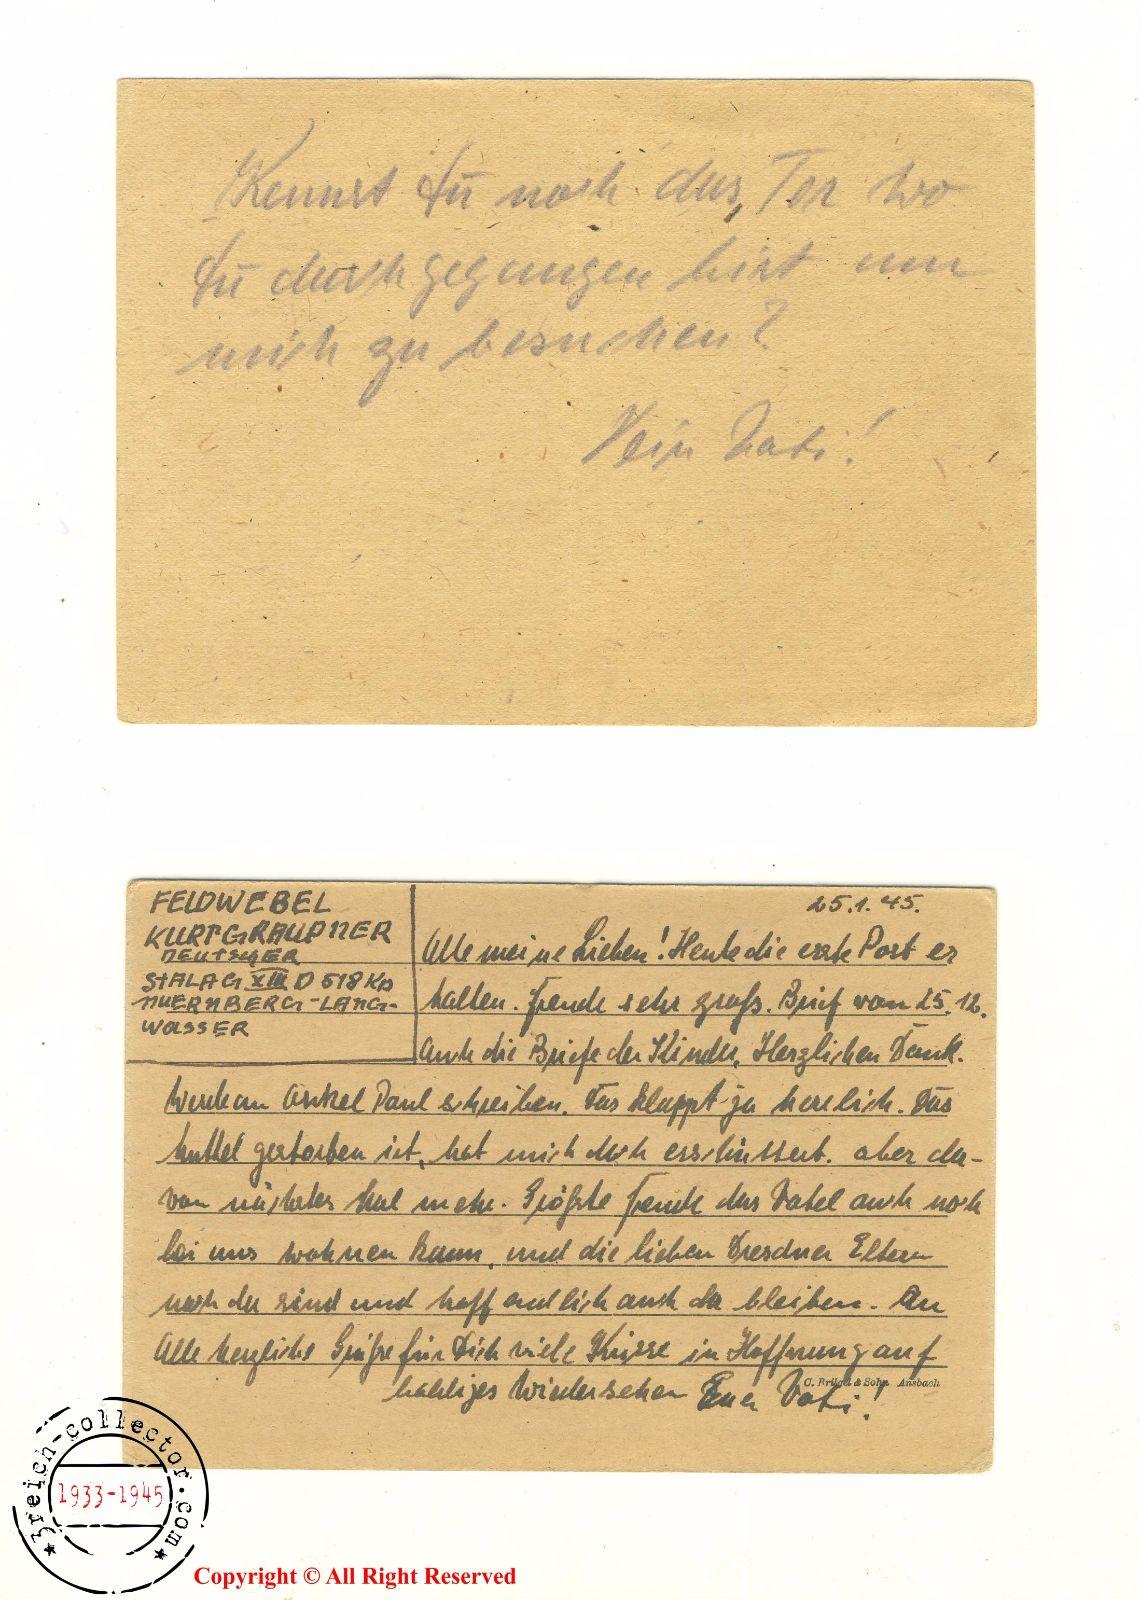 Kennst Du noch das Tor wo
Du durchgegangen bist um
mich zu besuchen?
Dein Vati!
FELDWEBEL
KURT GRAUPNER
DEUTSCHER
STALAG XIII D 518 Kp
NUERNBERG-LANG-
WASSER
25.1.45.
Alle meine Lieben! Heute die erste Post er
halten. Freude sehr groß. Brief vom 25.12.
Auch die Briefe der Kinder. Herzlichen Dank.
Werde an Onkel Paul schreiben. Das klappt ja herrlich. Das
Muttel gestorben ist, hat mich doch erschüttert. aber da-
von nächstes Mal mehr. Größte Freude das Vatel auch noch
bei uns wohnen kann, und die lieben Dresdner Eltern
noch da sind und hoffendlich auch da bleiben. An
Alle herzliche Grüße für Dich viele Küsse in Hoffnung auf
baldiges Wiedersehen Euer Vati!
C. Brügel & Sohn Ansbach
3reich-collector.com
1933-1945
Copyright © All Right Reserved